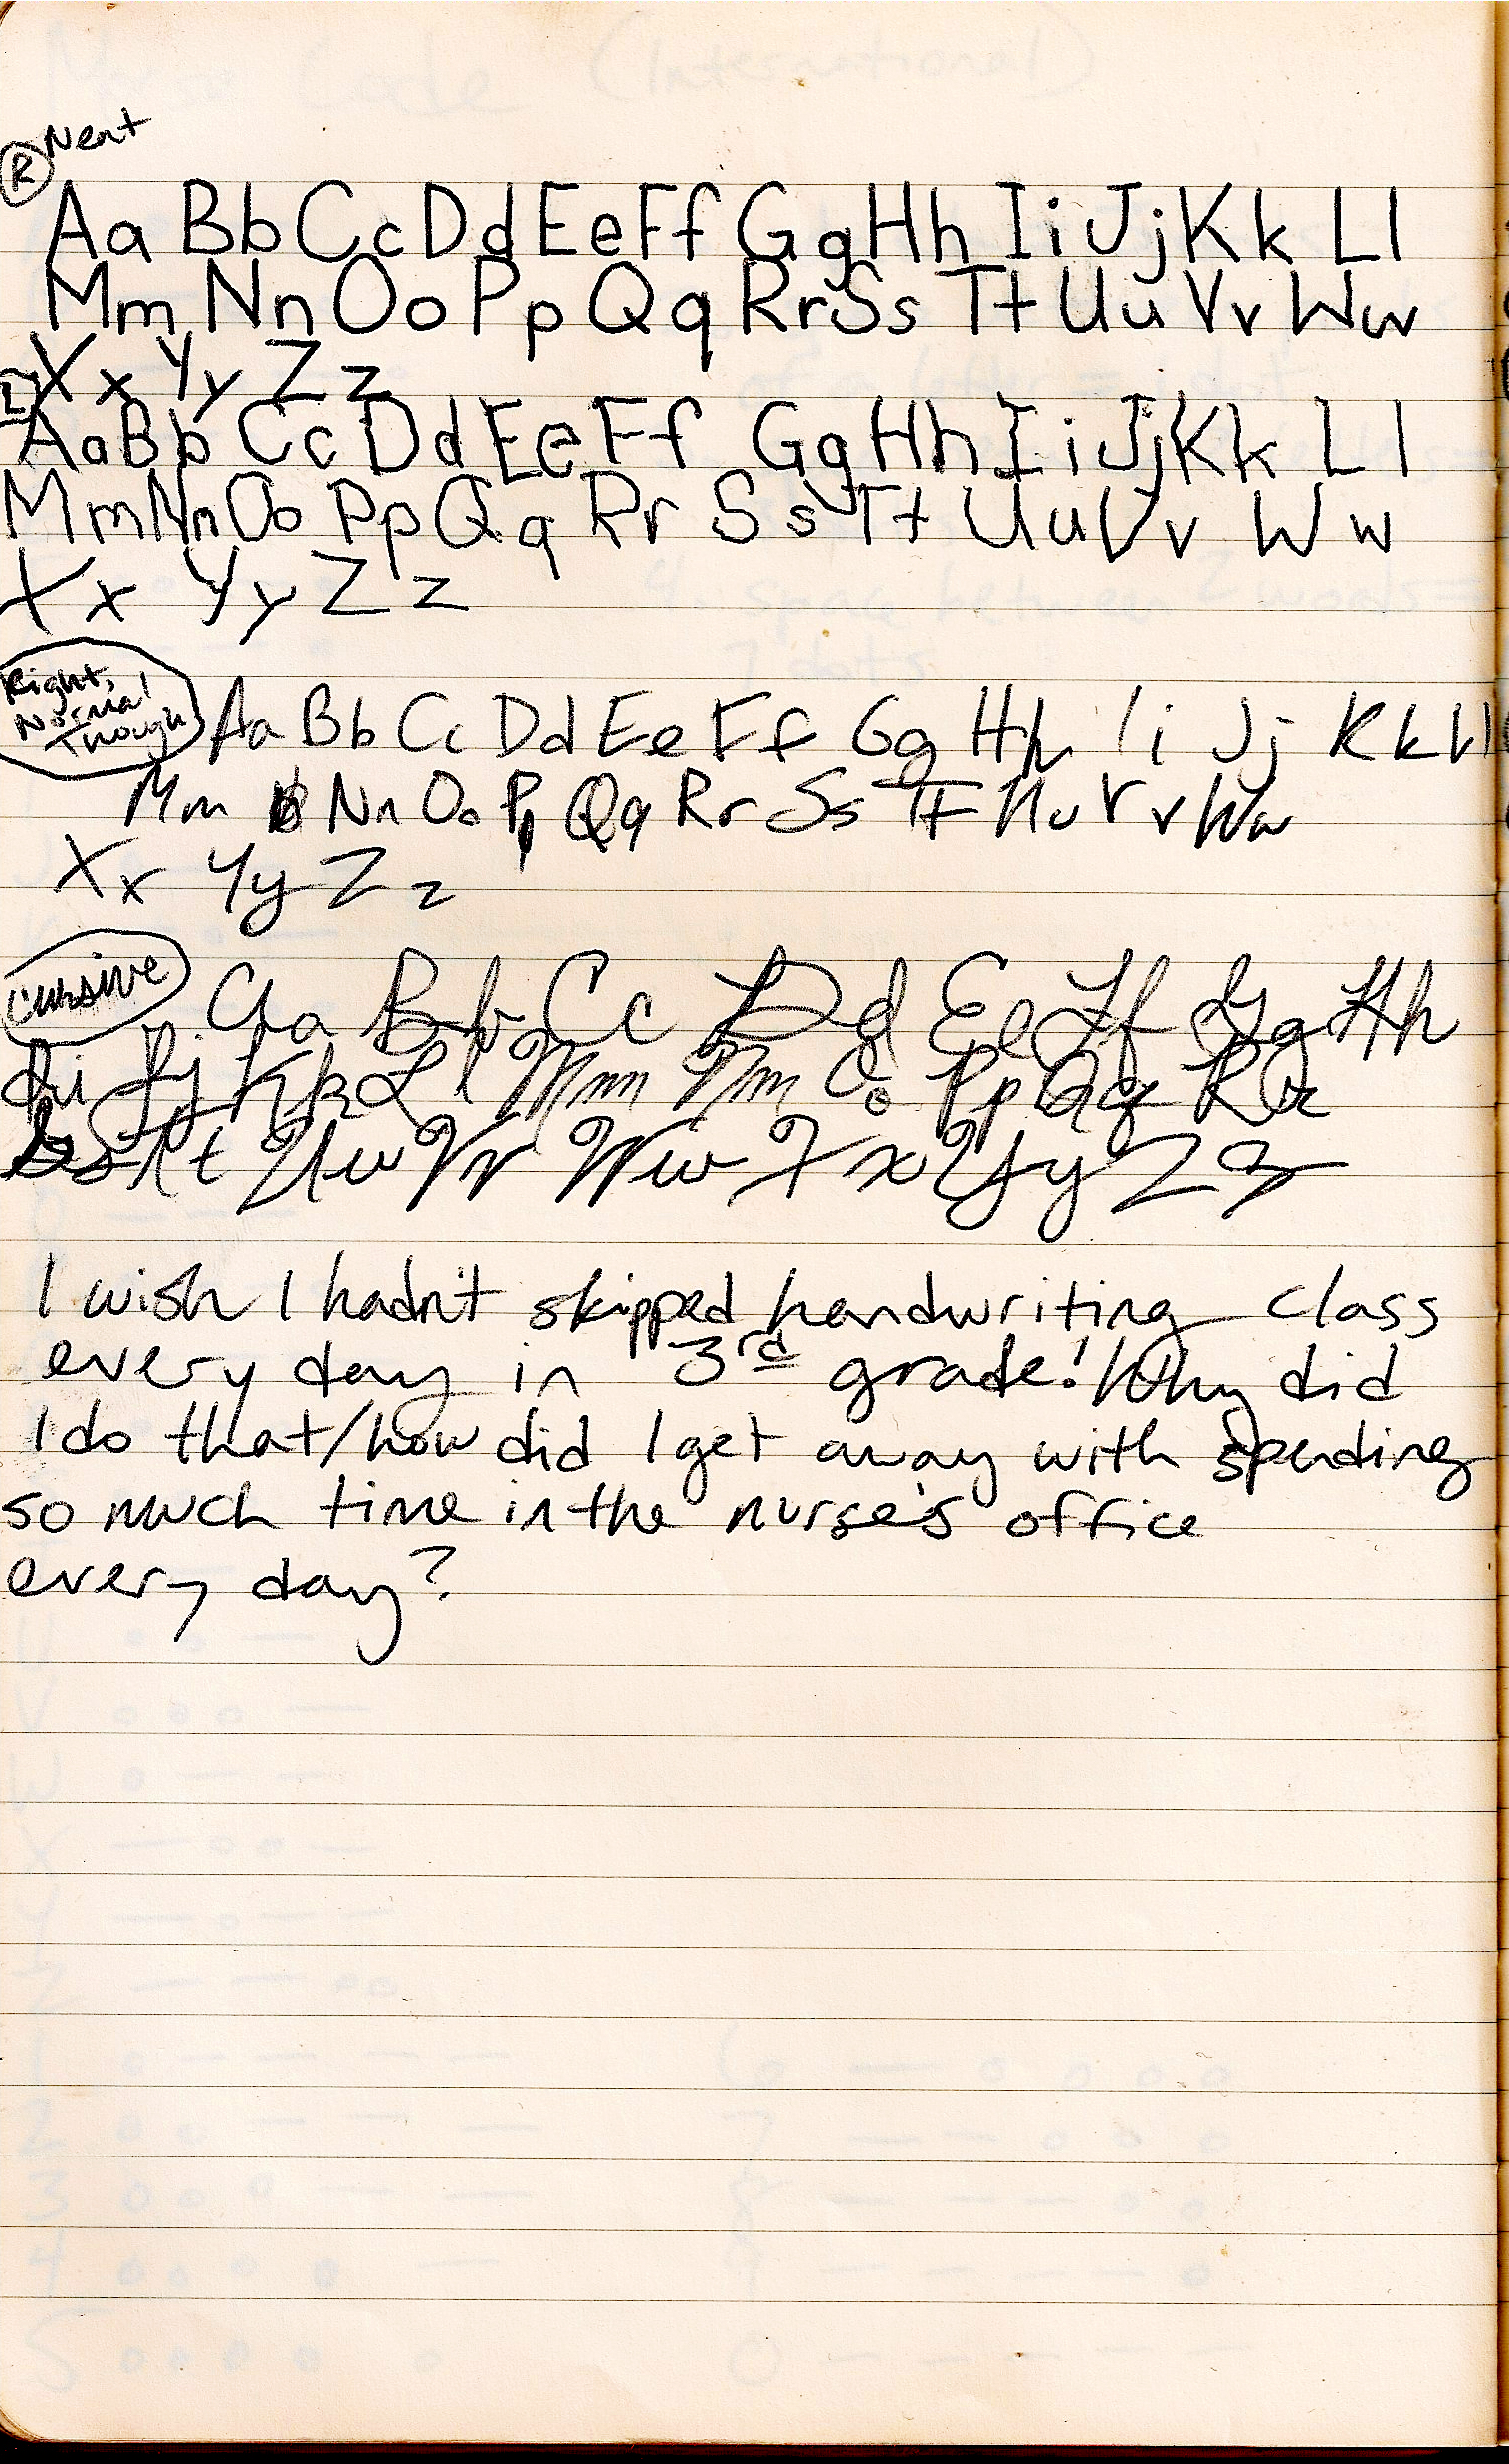 Neat
R
Aa Bb Cc Dd Ee Ff Gg Hh Ii Jj Kk Ll
Mm Nn Oo Pp Qq Rr Ss Tt Uu Vv Ww
Xx Yy Zz
L
Aa Bb Cc Dd Ee Ff Gg Hh Ii Jj Kk Ll
Mm Nn Oo Pp Qq Rr Ss Tt Uu Vv Ww
Xx Yy Zz
Right,
Normal
Though
Aa Bb Cc Dd Ee Ff Gg Hh Ii Jj Kk Ll
Mm Nn Oo Pp Qq Rr Ss Tt Uu Vv Ww
Xx Yy Zz
Cursive
Aa Bb Cc Dd Ee Ff Gg Hh
Ii Jj Kk Ll Mm Nn Oo Pp Qq Rr
Ss Tt Uu Vv Ww Xx Yy Zz
I wish I hadn't skipped handwriting class
every day in 3rd grade! Why did
I do that/how did I get away with spending
so much time in the nurse's office
every day?